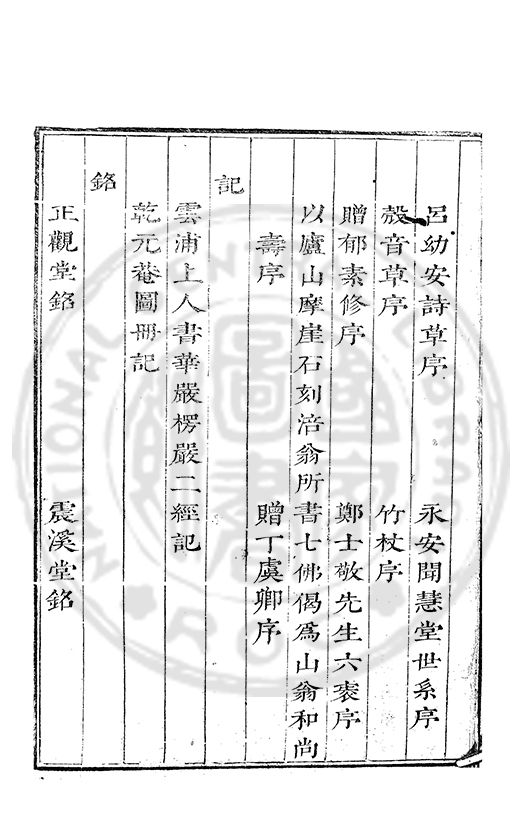 呂幼安詩草序　永安聞慧堂世系序
鷇音草序　竹杖序
贈郁素修序　鄭士敬先生六袠序
以廬山摩崖石刻涪翁所書七佛偈為山翁和尚
壽序　贈丁虞卿序
記
雲浦上人書華嚴楞嚴二經記
乾元菴圖冊記
銘
正觀堂銘　震溪堂銘